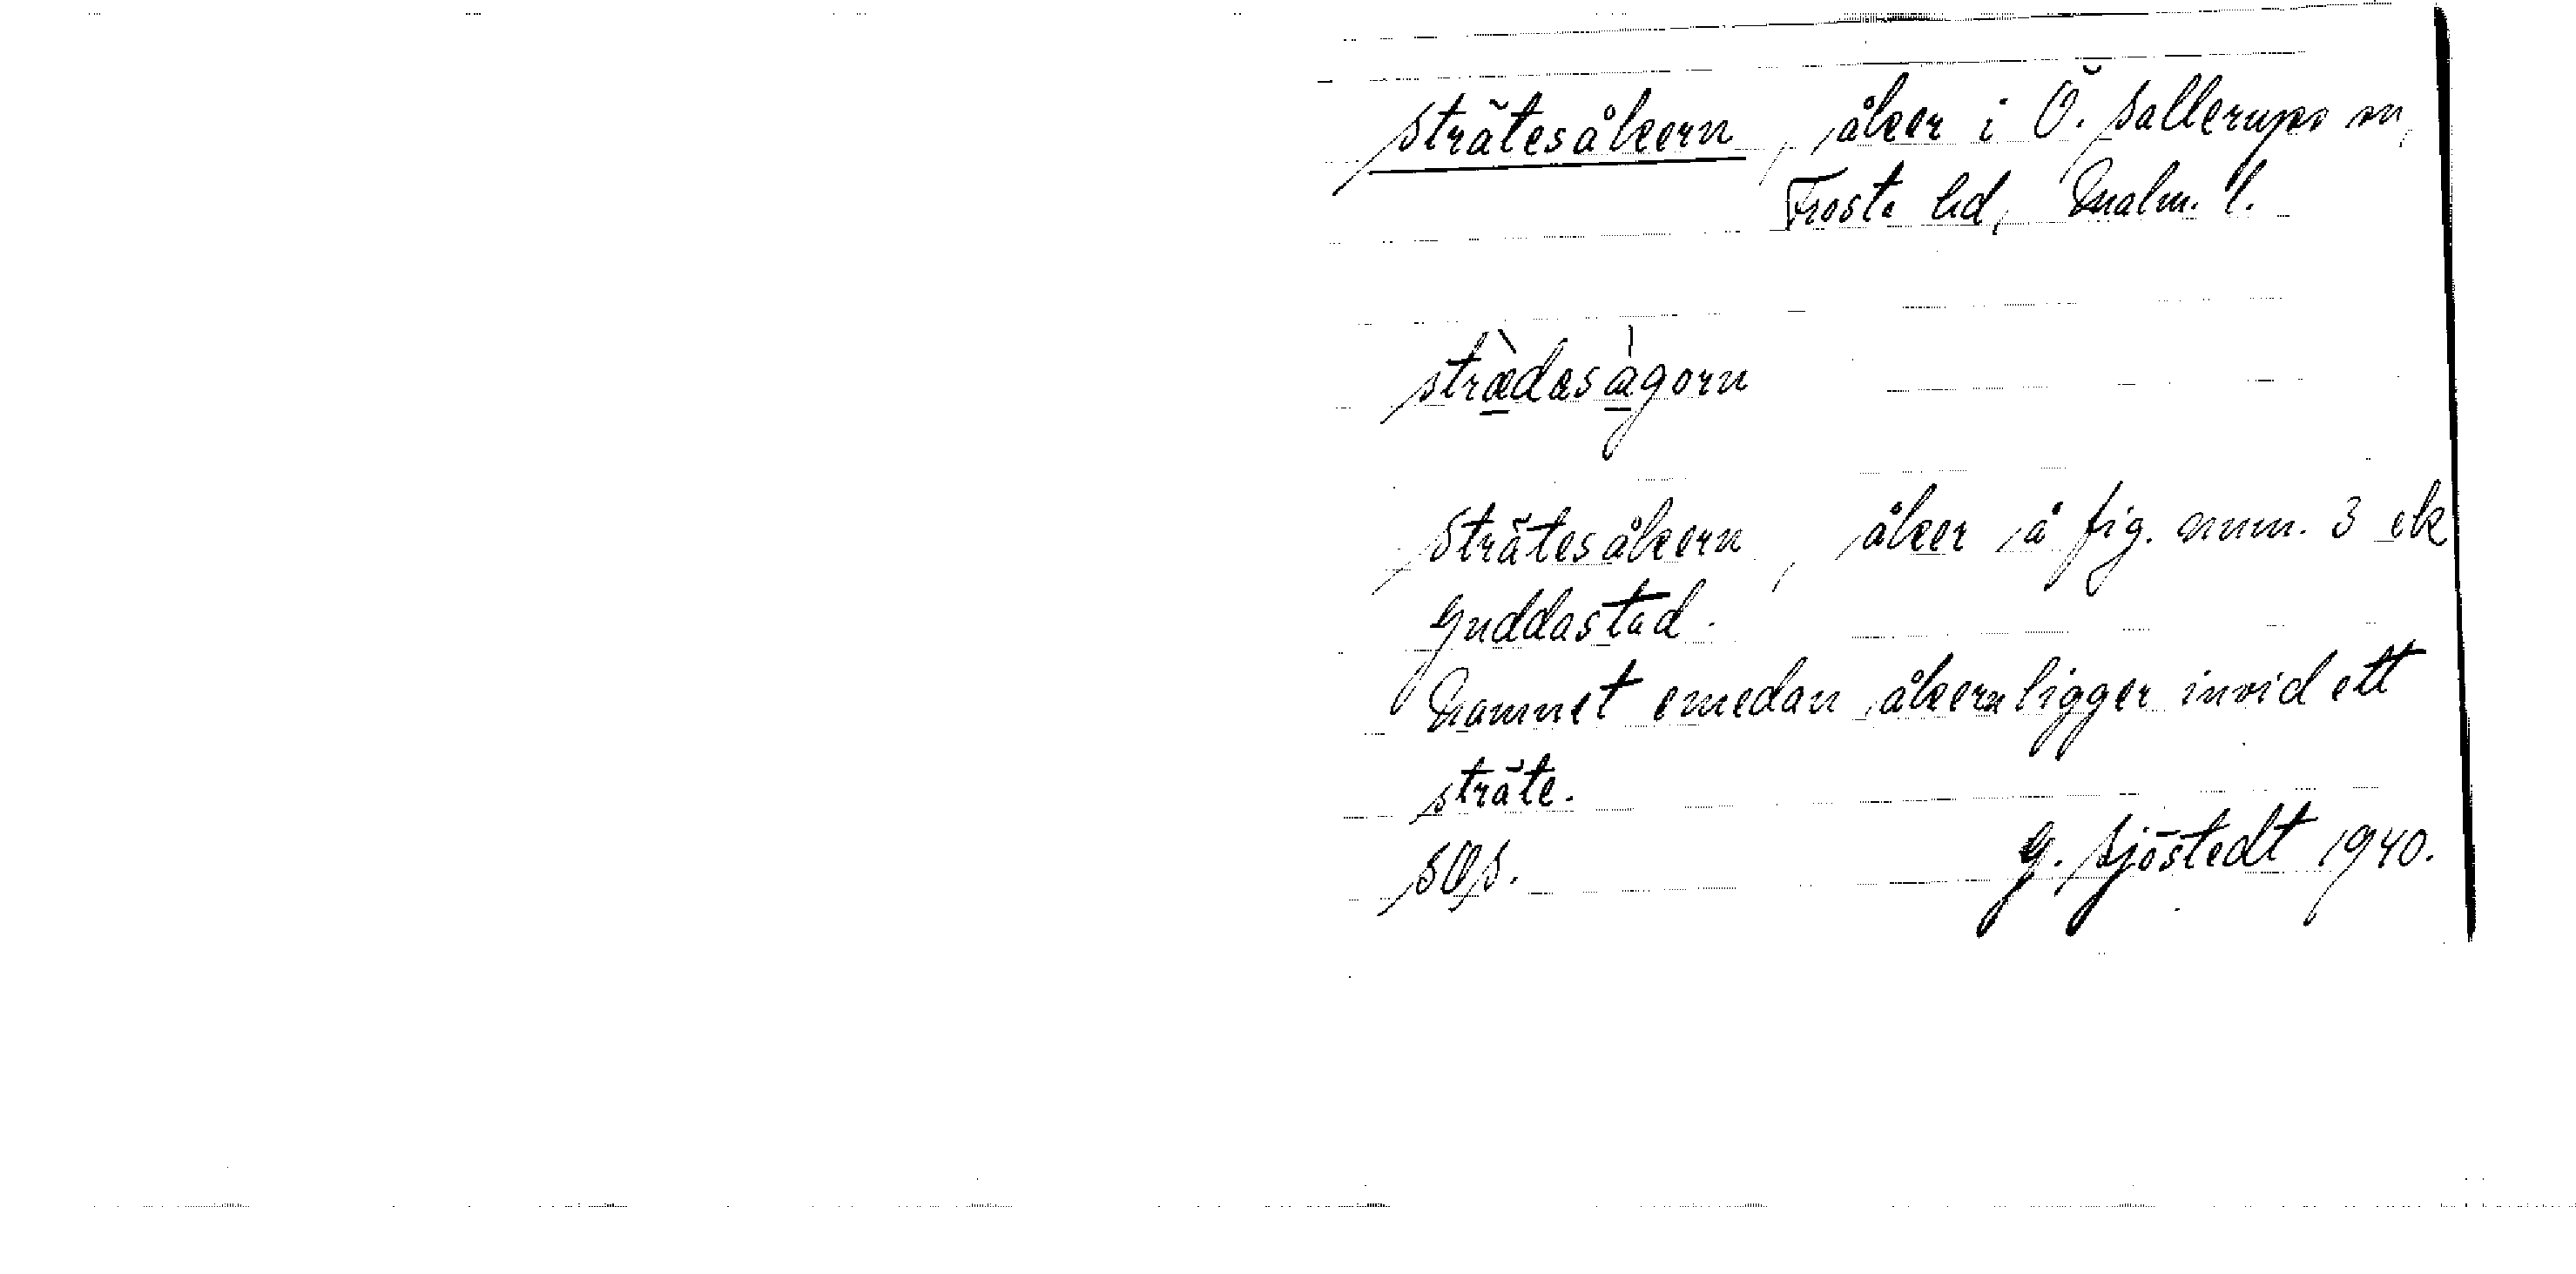 Strätesåkern, åker i Ö. Sallerups sn,
Frosta hd, Malm. l.
strædasågorn
Strätesåkern, åker å fig. num. 3 ek
Guddastad.
Namnet emedan åkern ligger invid ett
sträte.
SOS. G. Sjöstedt 1940.